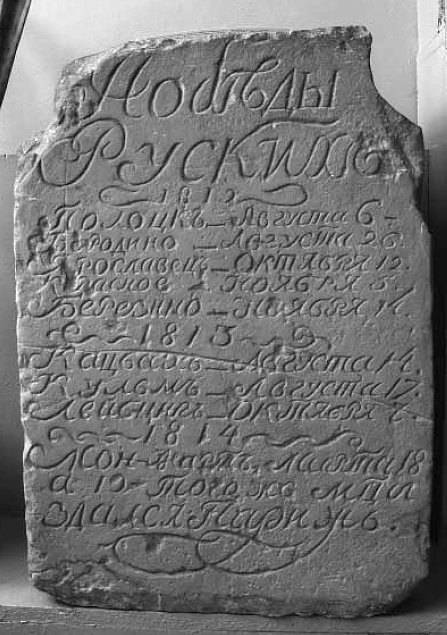 Побѣды
Рускихъ
1812
Полоцкъ – Августа 6 –
Бородино – Августа 26.
Ярославецъ – Октября 12.
Красное. Ноября 5.
Березино – Ноября 14.
1813
Кацбахъ – Августа 14.
Кульмъ – Августа 17.
Лейпцигъ – Октября
1814
Мон-Мартъ, Марта 18
а 19 – того жъ мца
здался Парижъ.